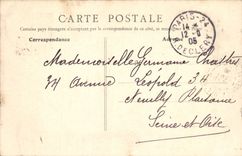 CARTE POSTALE
Certains pays étrangers n'acceptent pas la correspondance de ce côté, se renseigner à la Poste
Correspondance
PARIS-24
R. DE CLERY
Mademoiselle Germaine Chastres
Avenue Léopold 34
Neuilly Plaisance
Seine et Oise